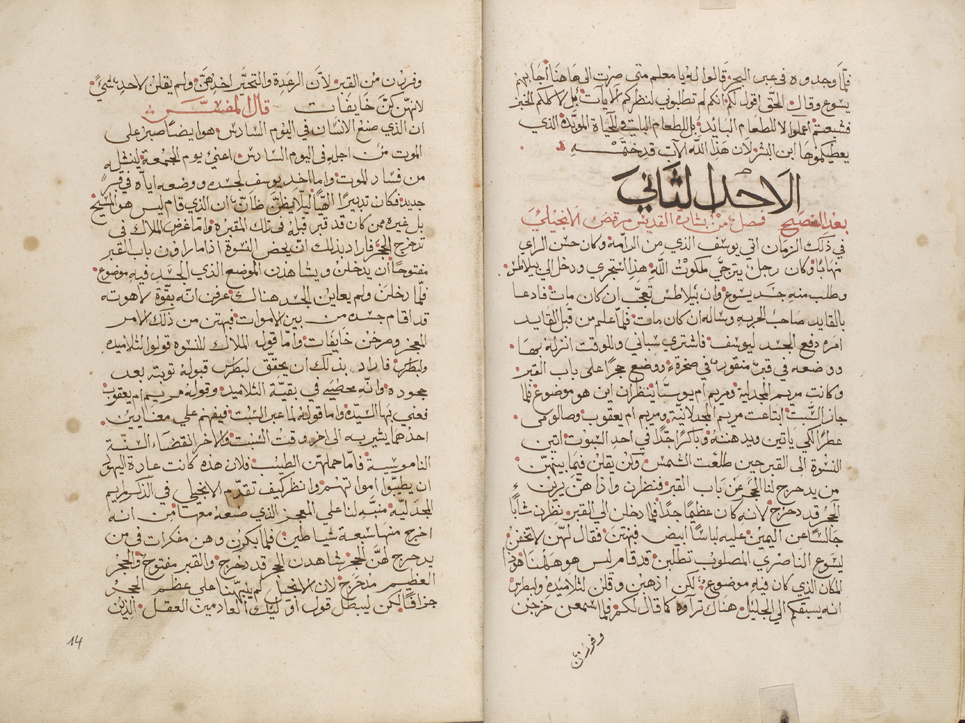 فلما وجدوه في عبر البحر قالوا له يا معلم متى صرت الى هاهنا أجابهم
يسوع وقال الحق اقول لكم انكم لم تطلبوني لنظركم الآيات بل لاكلكم الخبز
فشبعتم اعملوا لا للطعام البائد بل للطعام الثابت في الحياة الموبده الذي
يعطيكموها ابن البشر لان هذا الله الآب قد ختمه
الاحد الثاني
بعد الفصح فصل من بشارة القديس مرقص الانجيلي
في ذلك الزمان اتى يوسف الذي من الرامة وكان حسن الراي
مهابا وكان رجل يترجى ملكوت الله هذا استجرى ودخل الى بيلاطس
وطلب منه جسد يسوع وان بيلاطس تعجب ان كان مات فادعا
بالقايد صاحب الحربه وساله ان كان مات فلما علم من قبل القايد
امره دفع الجسد ليوسف فاشترى سباني وللوقت انزله بها
ووضعه في قبر منقور في صخرة ووضع حجرا على باب القبر
وكانت مريم المجدلية ومريم ام يوسا ينظران اين هو موضوع فلما
جاز السبت ابتاعت مريم المجدلانية ومريم ام يعقوب وصالومى
عطرا لكي ياتين ويدهنه وباكرا جدا في احد السبوت اتين
النسوة الى القبر حين طلعت الشمس وكن يقلن فيما بينهن
من يدحرج لنا الحجر عن باب القبر فنظرن واذا هن يرين
الحجر قد دحرج لانه كان عظيما جدا فلما دخلن الى القبر نظرن شابا
جالسا عن اليمين عليه لباسا أبيض فبهتن فقال لهن لا تخفن
ليسوع الناصري المصلوب تطلبن قد قام ليس هو هاهنا هوذا
المكان الذي كان فيه موضوع لكن اذهبن وقلن لتلاميذه ولبطرس
انه يسبقكم الى الجليل هناك تراوه كما قال لكم فلما سمعن خرجن
وفررن
وفررن من القبر لان الرعدة والتحير اخذهن ولم يقلن لاحد شي
لانهن كن خايفات قال المفسر
ان الذي صنع الانسان في اليوم السادس هو ايضا صبر على
الموت من اجله في اليوم السادس اعني يوم الجمعة لينشله
من فساد الموت واما اخد يوسف لجسده ووضعه اياه في قبر
جديد فكان تدبيرا الهيا ليلا يظن ظان ان الذي قام ليس هو المسيح
بل غيره ممن كان قد قبر قبله في تلك المقبرة واما غرض الملاك في
تدحرج الحجر فاراد بذلك ان يحض النسوة اذا ما راون باب القبر
مفتوحا أن يدخلن ويشاهدن الموضع الذي الجسد فيه موضوع
فلما دخلن ولم يعاين الجسد هنالك عرفن انه بقوة لاهوته
قد اقام جسده من بين الاموات فبهتن من ذلك الامر
المعجز وخرجن خايفات واما قول الملاك للنسوة قولوا لتلاميذه
ولبطرس فاراد بذلك ان يحقق لبطرس قبولة توبته بعد
جحوده وانه محصى في بقية التلاميذ وقوله مريم ام يعقوب
فعنى بها السيده واما قوله لما عبر السبت فيفهم على معنايين
احدهما يشير به الى اخر وقت السبت والاخر انقضا السنة
الناموسية فاما حملتهن الطيب فلان هذه كانت عادة اليهود
ان يطيبوا امواتهم وانظر كيف تقدم الانجيلي في الذكر مريم
المجدلية منبه لنا على المعجز الذي صنعه معها من انه
اخرج منها سبعة شياطين فلما بكرن وهن مفكرات في من
يدحرج لهن الحجر شاهدن الحجر قد دحرج والقبر مفتوح والحجر
العظيم متدحرج لان الانجيلي لم ينبهنا على عظم الحجر
جزافا لكن ليبطل قول أوليك العادمين العقل الذين
14